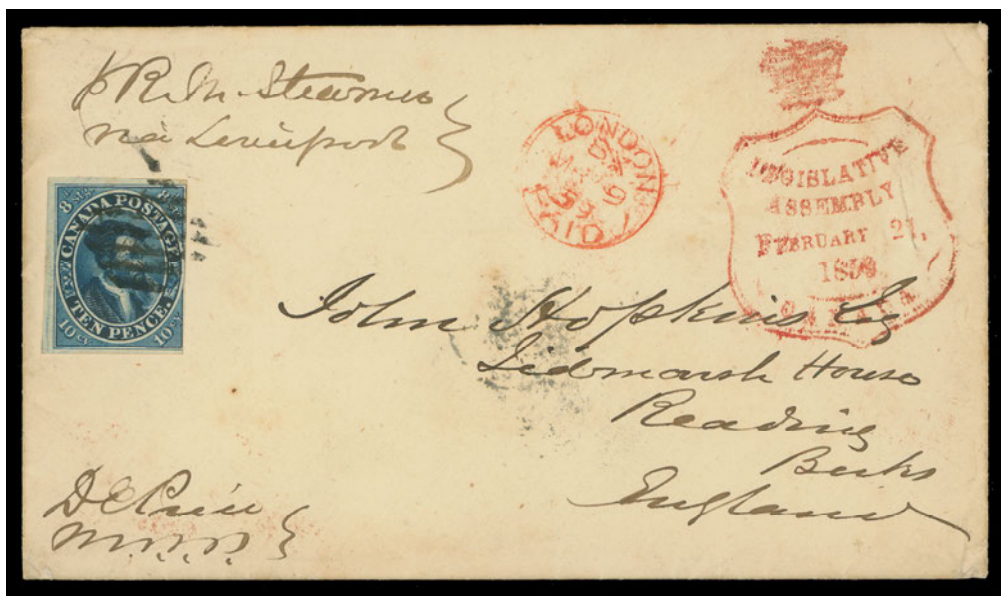 p R. M. Steamer
via Liverpool
LONDON
MR 9
59
PAID
LEGISLATIVE
ASSEMBLY
FEBRUARY 21,
1859
CANADA
CANADA POSTAGE
TEN PENCE
8
10 CY
10 CY
John Hopkins Esq
Tidmarsh House
Reading
Berks
England